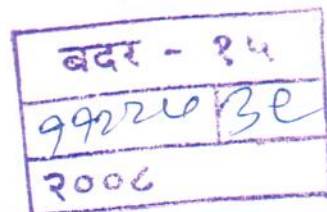 बदर - १५
११२२५ ३९
२००८